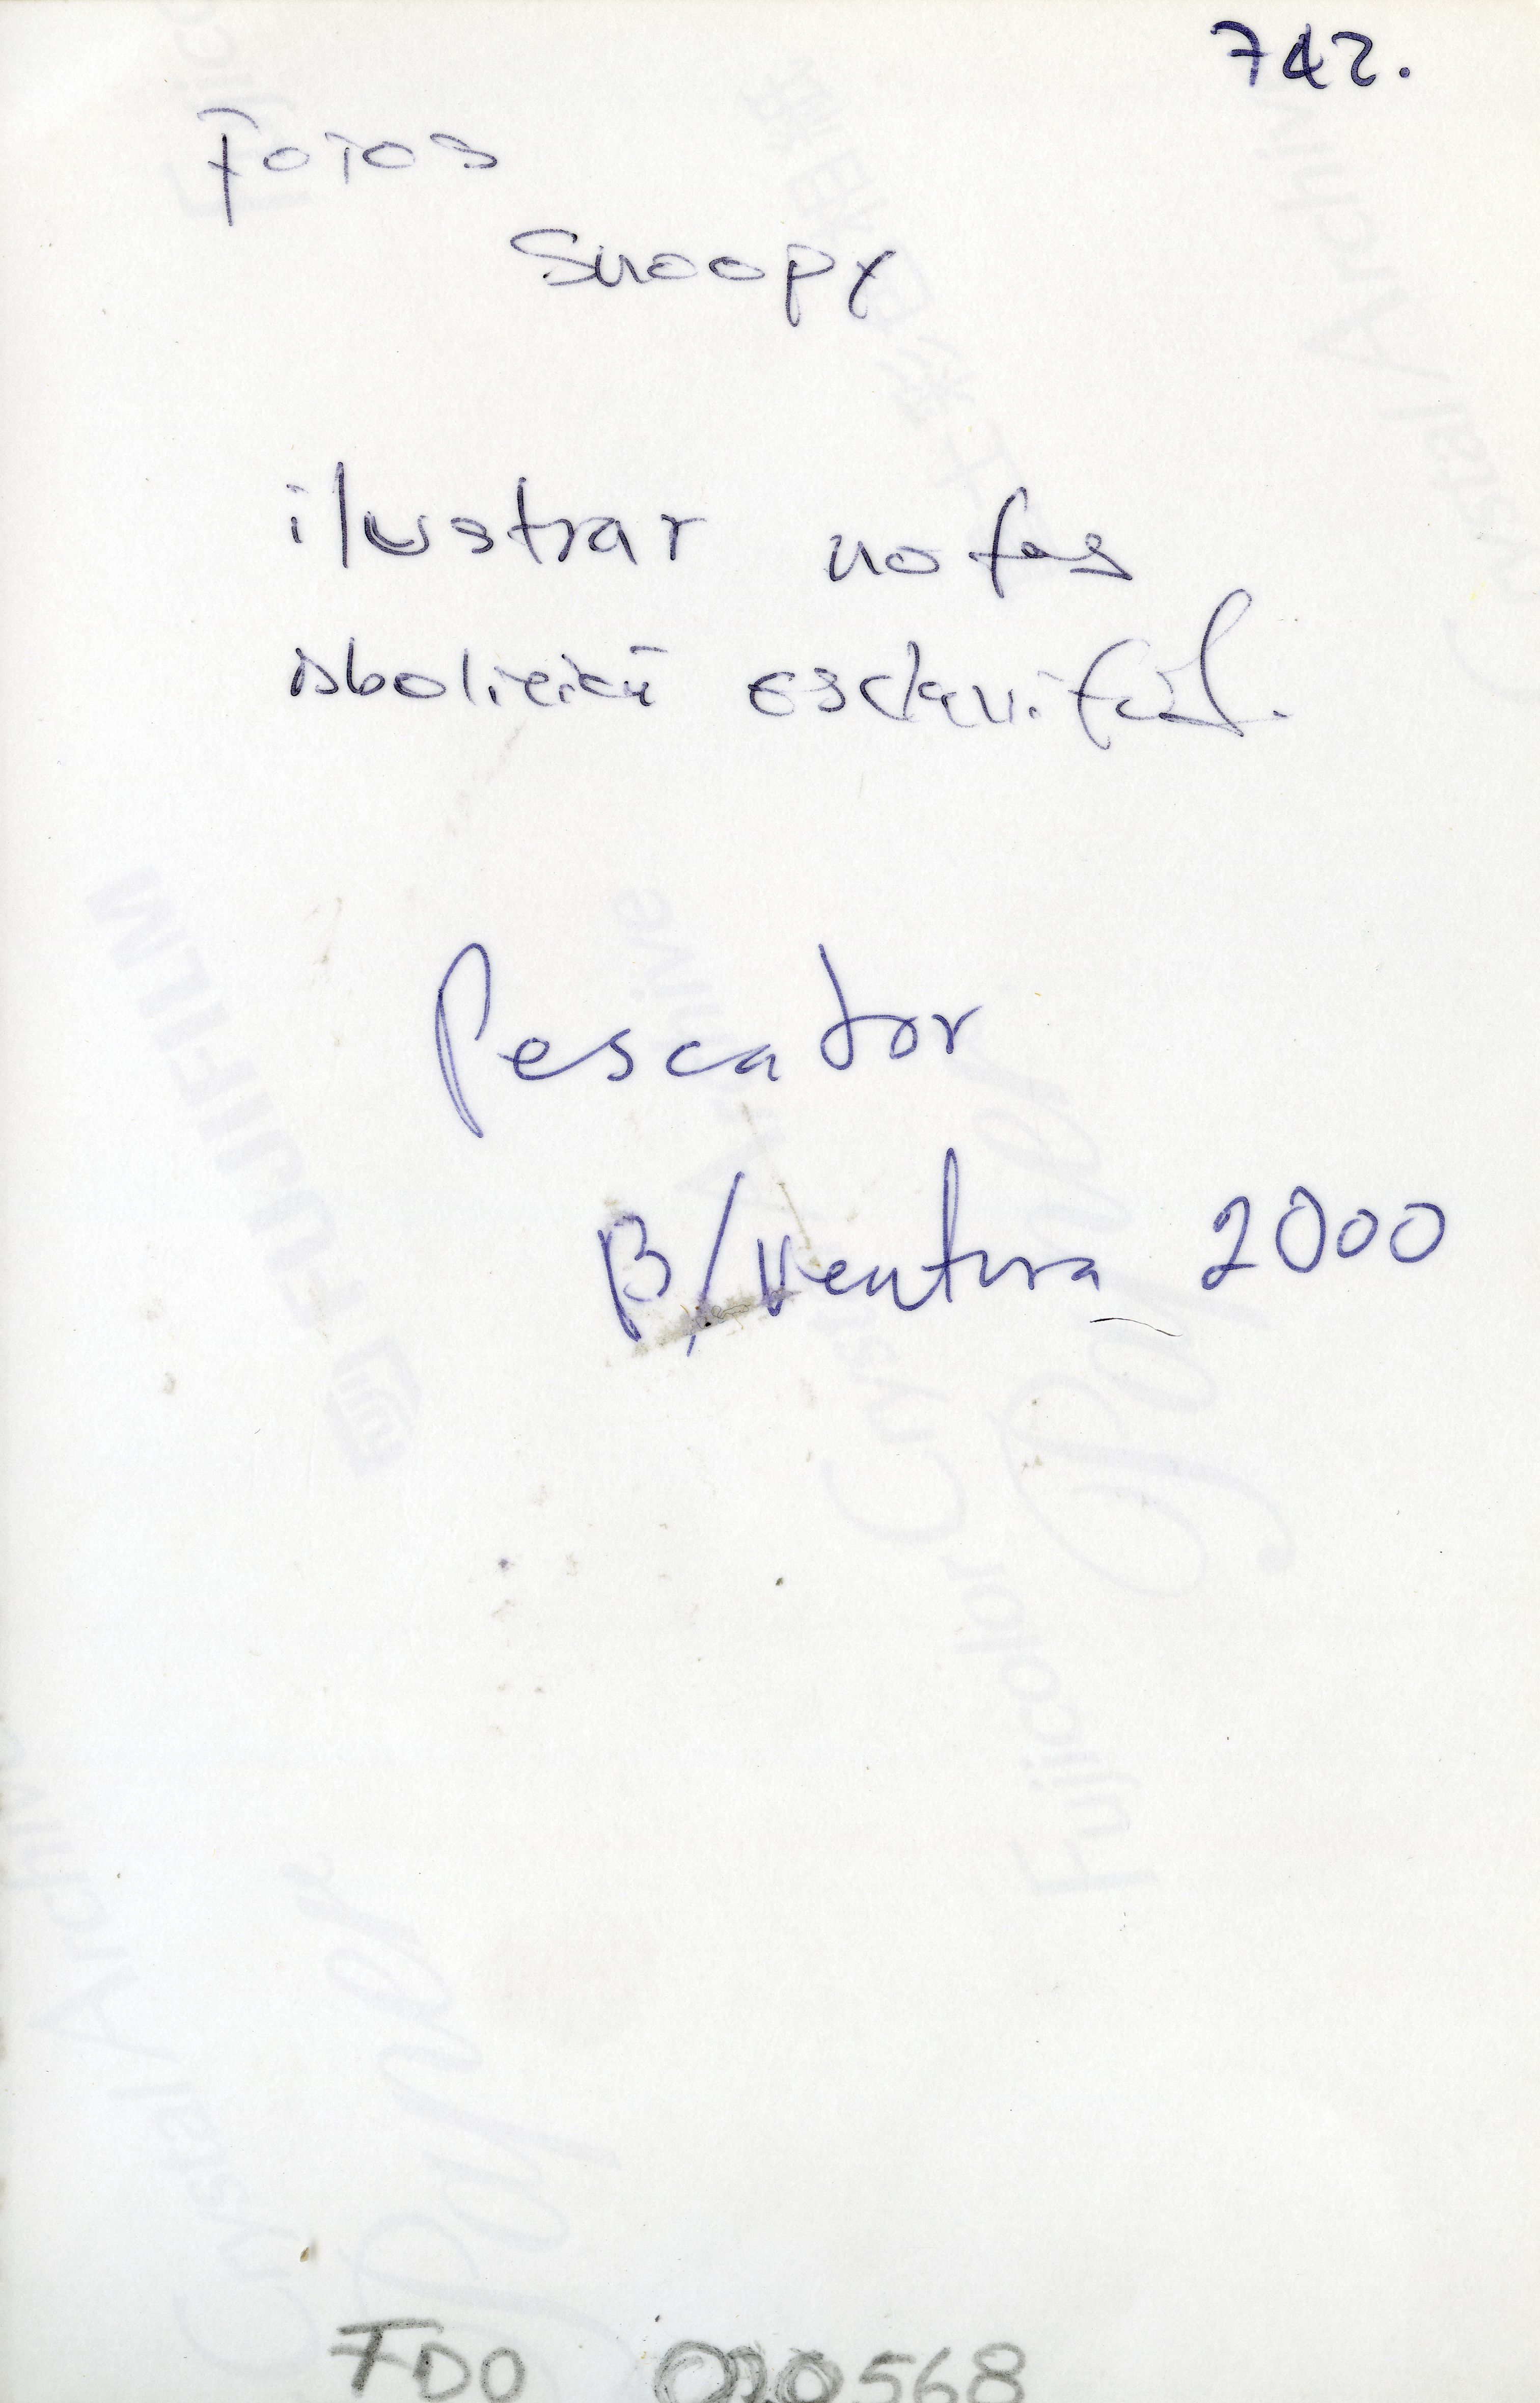 742.
Fotos
Snoopy
ilustrar notas
abolición esclavitud.
Pescador
B/Ventura 2000
FDO 020568